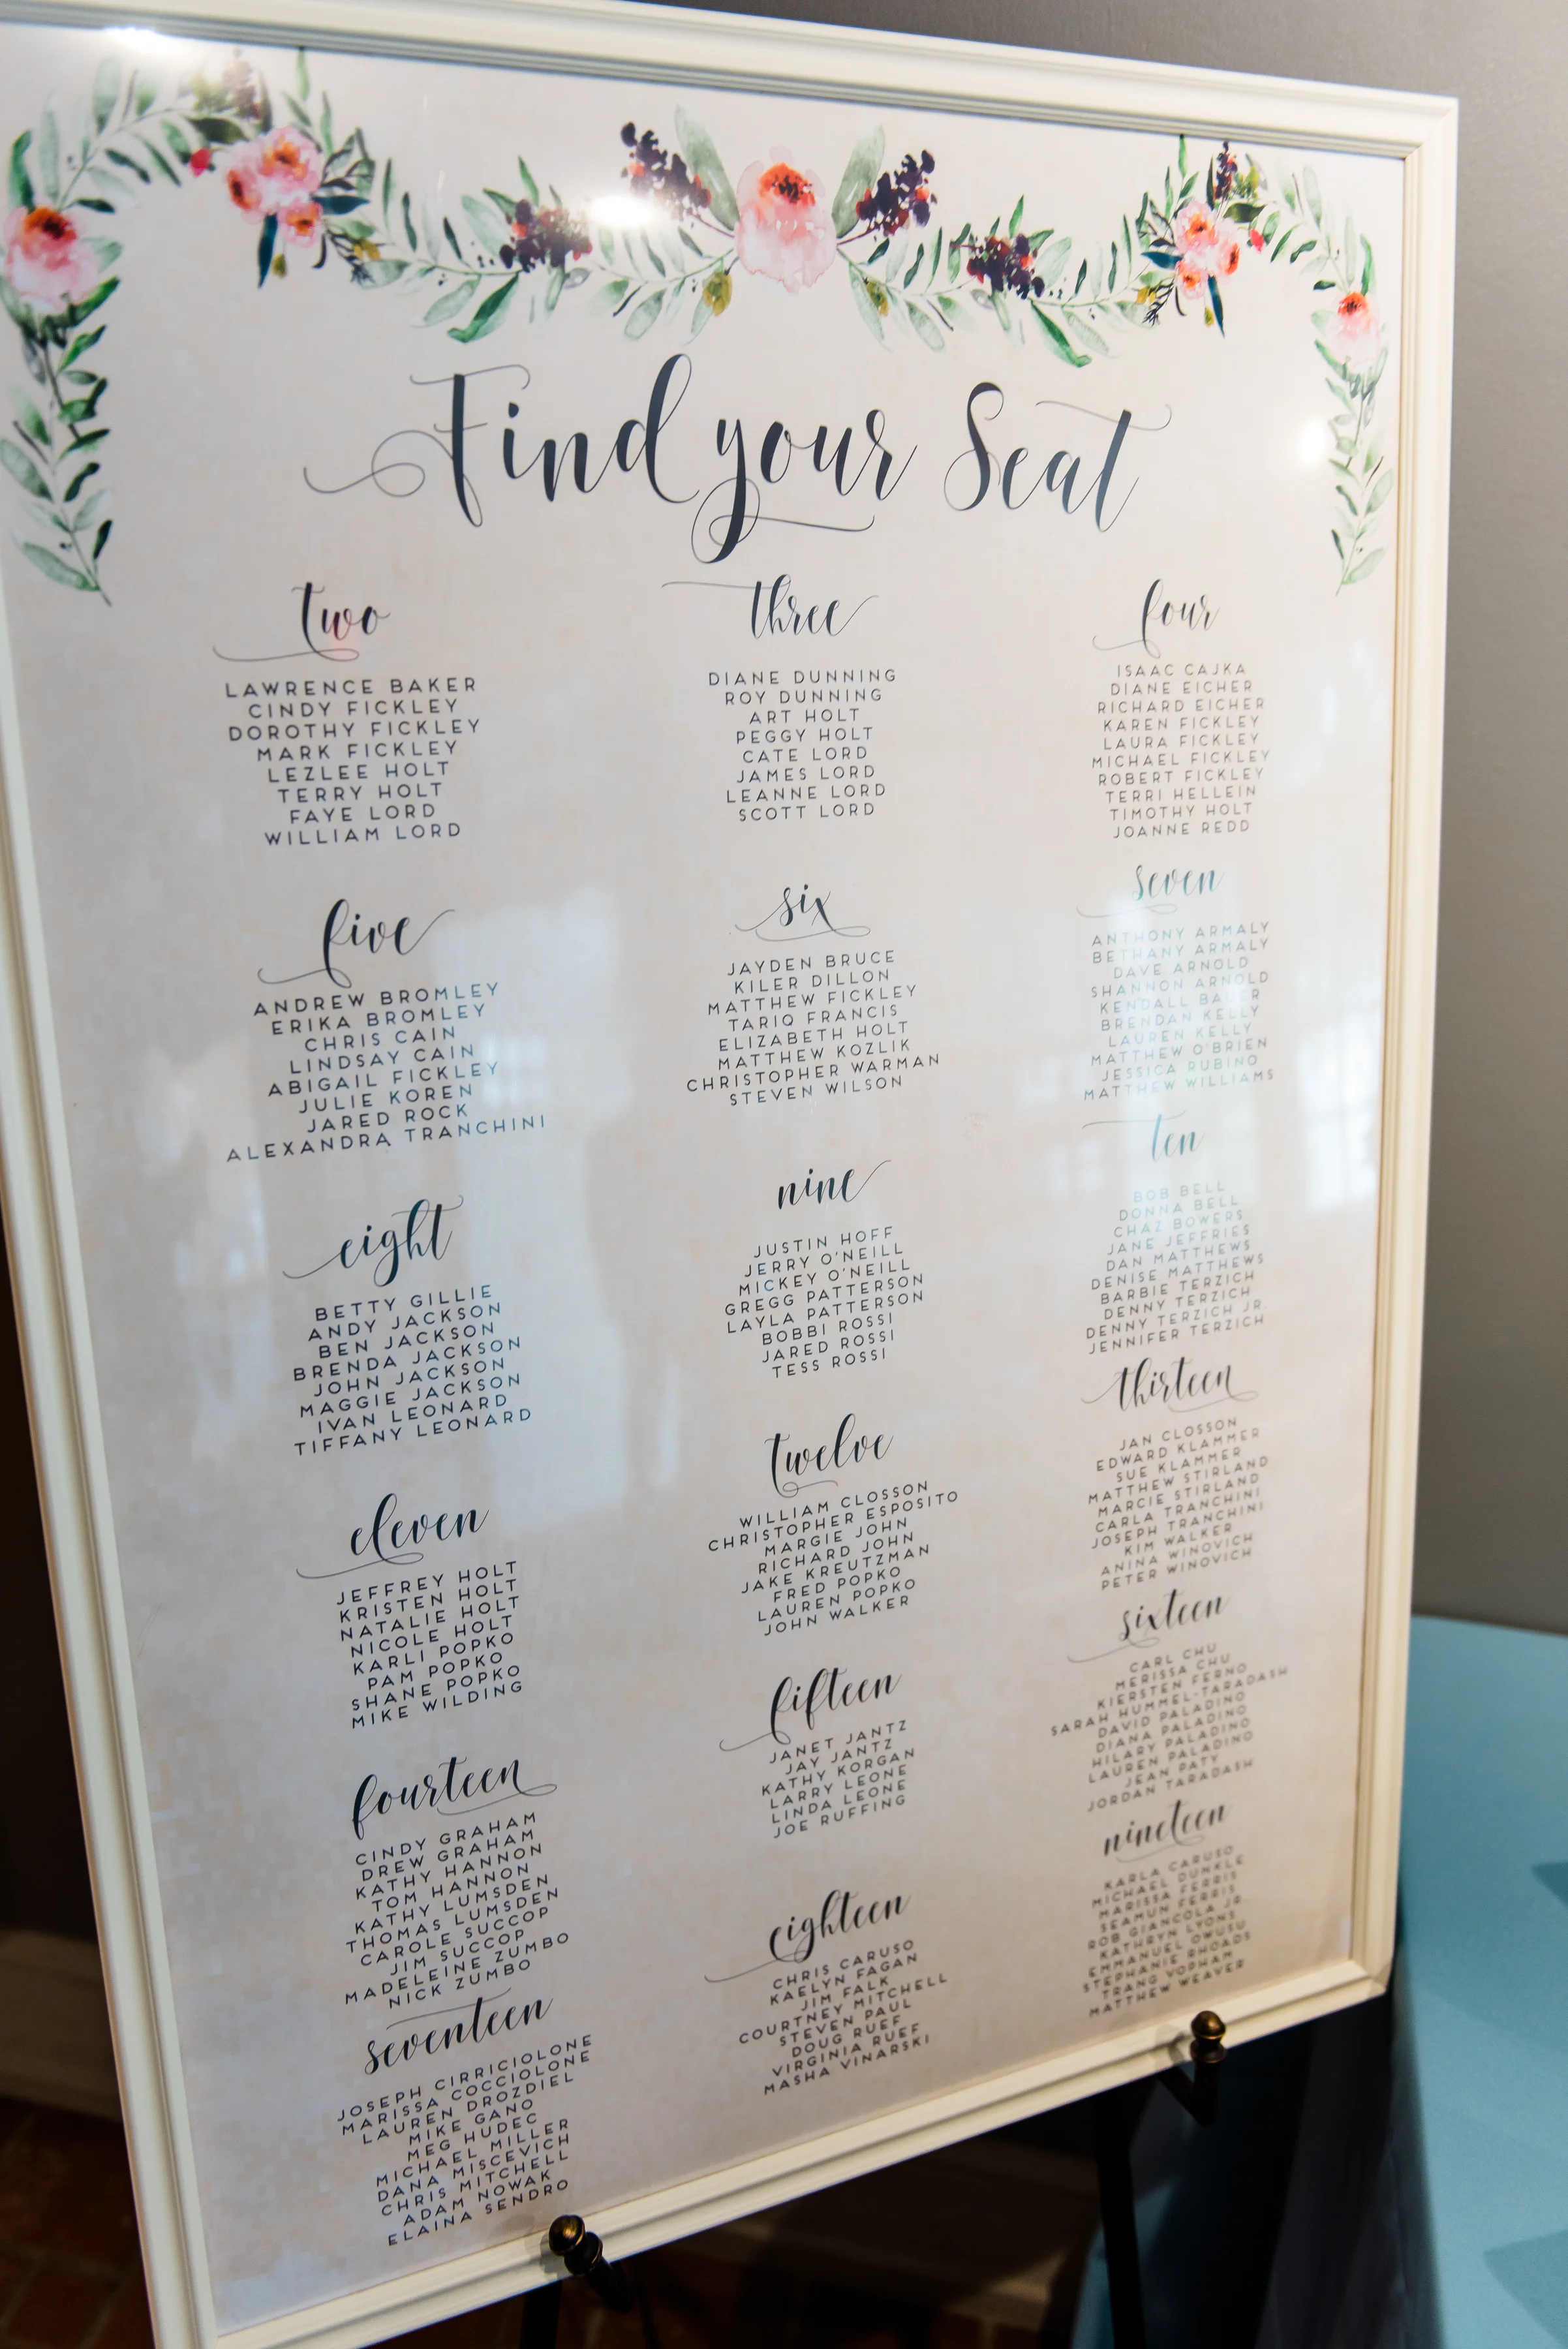 Find your Seat
two
LAWRENCE BAKER
CINDY FICKLEY
DOROTHY FICKLEY
MARK FICKLEY
LEZLEE HOLT
TERRY HOLT
FAYE LORD
WILLIAM LORD
three
DIANE DUNNING
ROY DUNNING
ART HOLT
PEGGY HOLT
CATE LORD
JAMES LORD
LEANNE LORD
SCOTT LORD
four
ISAAC CAJKA
DIANE EICHER
RICHARD EICHER
KAREN FICKLEY
LAURA FICKLEY
MICHAEL FICKLEY
ROBERT FICKLEY
TERRI HELLEIN
TIMOTHY HOLT
JOANNE REDD
five
ANDREW BROMLEY
ERIKA BROMLEY
CHRIS CAIN
LINDSAY CAIN
ABIGAIL FICKLEY
JULIE KOREN
JARED ROCK
ALEXANDRA TRANCHINI
six
JAYDEN BRUCE
KILER DILLON
MATTHEW FICKLEY
TARIQ FRANCIS
ELIZABETH HOLT
MATTHEW KOZLIK
CHRISTOPHER WARMAN
STEVEN WILSON
seven
ANTHONY ARMALY
BETHANY ARMALY
DAVE ARNOLD
SHANNON ARNOLD
KENDALL
BRENDAN KELLY
LAUREN KELLY
MATTHEW O'BRIEN
JESSICA RUBINO
MATTHEW WILLIAMS
eight
BETTY GILLIE
ANDY JACKSON
BEN JACKSON
BRENDA JACKSON
JOHN JACKSON
MAGGIE JACKSON
IVAN LEONARD
TIFFANY LEONARD
nine
JUSTIN HOFF
JERRY O'NEILL
MICKEY O'NEILL
GREGG PATTERSON
LAYLA PATTERSON
BOBBI ROSSI
JARED ROSSI
TESS ROSSI
ten
BOB BELL
DONNA BELL
CHAZ BOWERS
JANE JEFFRIES
DAN MATTHEWS
DENISE MATTHEWS
BARBIE TERZICH
DENNY TERZICH
DENNY TERZICH JR.
JENNIFER TERZICH
eleven
JEFFREY HOLT
KRISTEN HOLT
NATALIE HOLT
NICOLE HOLT
KARLI POPKO
PAM POPKO
SHANE POPKO
MIKE WILDING
twelve
WILLIAM CLOSSON
CHRISTOPHER ESPOSITO
MARGIE JOHN
RICHARD JOHN
JAKE KREUTZMAN
FRED POPKO
LAUREN POPKO
JOHN WALKER
thirteen
JAN CLOSSON
EDWARD KLAMMER
SUE KLAMMER
MATTHEW STIRLAND
MARCIE STIRLAND
CARLA TRANCHINI
JOSEPH TRANCHINI
KIM WALKER
ANINA WINOVICH
PETER WINOVICH
fourteen
CINDY GRAHAM
DREW GRAHAM
KATHY HANNON
TOM HANNON
KATHY LUMSDEN
THOMAS LUMSDEN
CAROLE SUCCOP
JIM SUCCOP
MADELEINE ZUMBO
NICK ZUMBO
fifteen
JANET JANTZ
JAY JANTZ
KATHY KORGAN
LARRY LEONE
LINDA LEONE
JOE RUFFING
sixteen
CARL CHU
MERISSA CHU
KIERSTEN FERNO
SARAH HUMMEL-TARADASH
DAVID PALADINO
DIANA PALADINO
HILARY PALADINO
LAUREN PALADINO
JEAN PATY
JORDAN TARADASH
seventeen
JOSEPH CIRRICIOLONE
MARISSA COCCIOLONE
LAUREN DROZDIEL
MIKE GANO
MEG HUDEC
MICHAEL MILLER
DANA MISCEVICH
CHRIS MITCHELL
ADAM NOWAK
ELAINA SENDRO
eighteen
CHRIS CARUSO
KAELYN FAGAN
JIM FALK
COURTNEY MITCHELL
STEVEN PAUL
DOUG RUEF
VIRGINIA RUEF
MASHA VINARSKI
nineteen
KARLA CARUSO
MICHAEL DUNKLE
MARISSA FERRIS
SEAMUN FERRIS
ROB GIANCOLA JR.
KATHRYN LYONS
EMMANUEL OWUSU
STEPHANIE RHOADS
TRANG VOPHAM
MATTHEW WEAVER